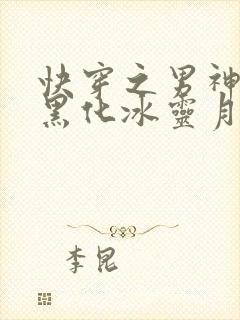 快穿之男神
黑化冰灵月
李昆